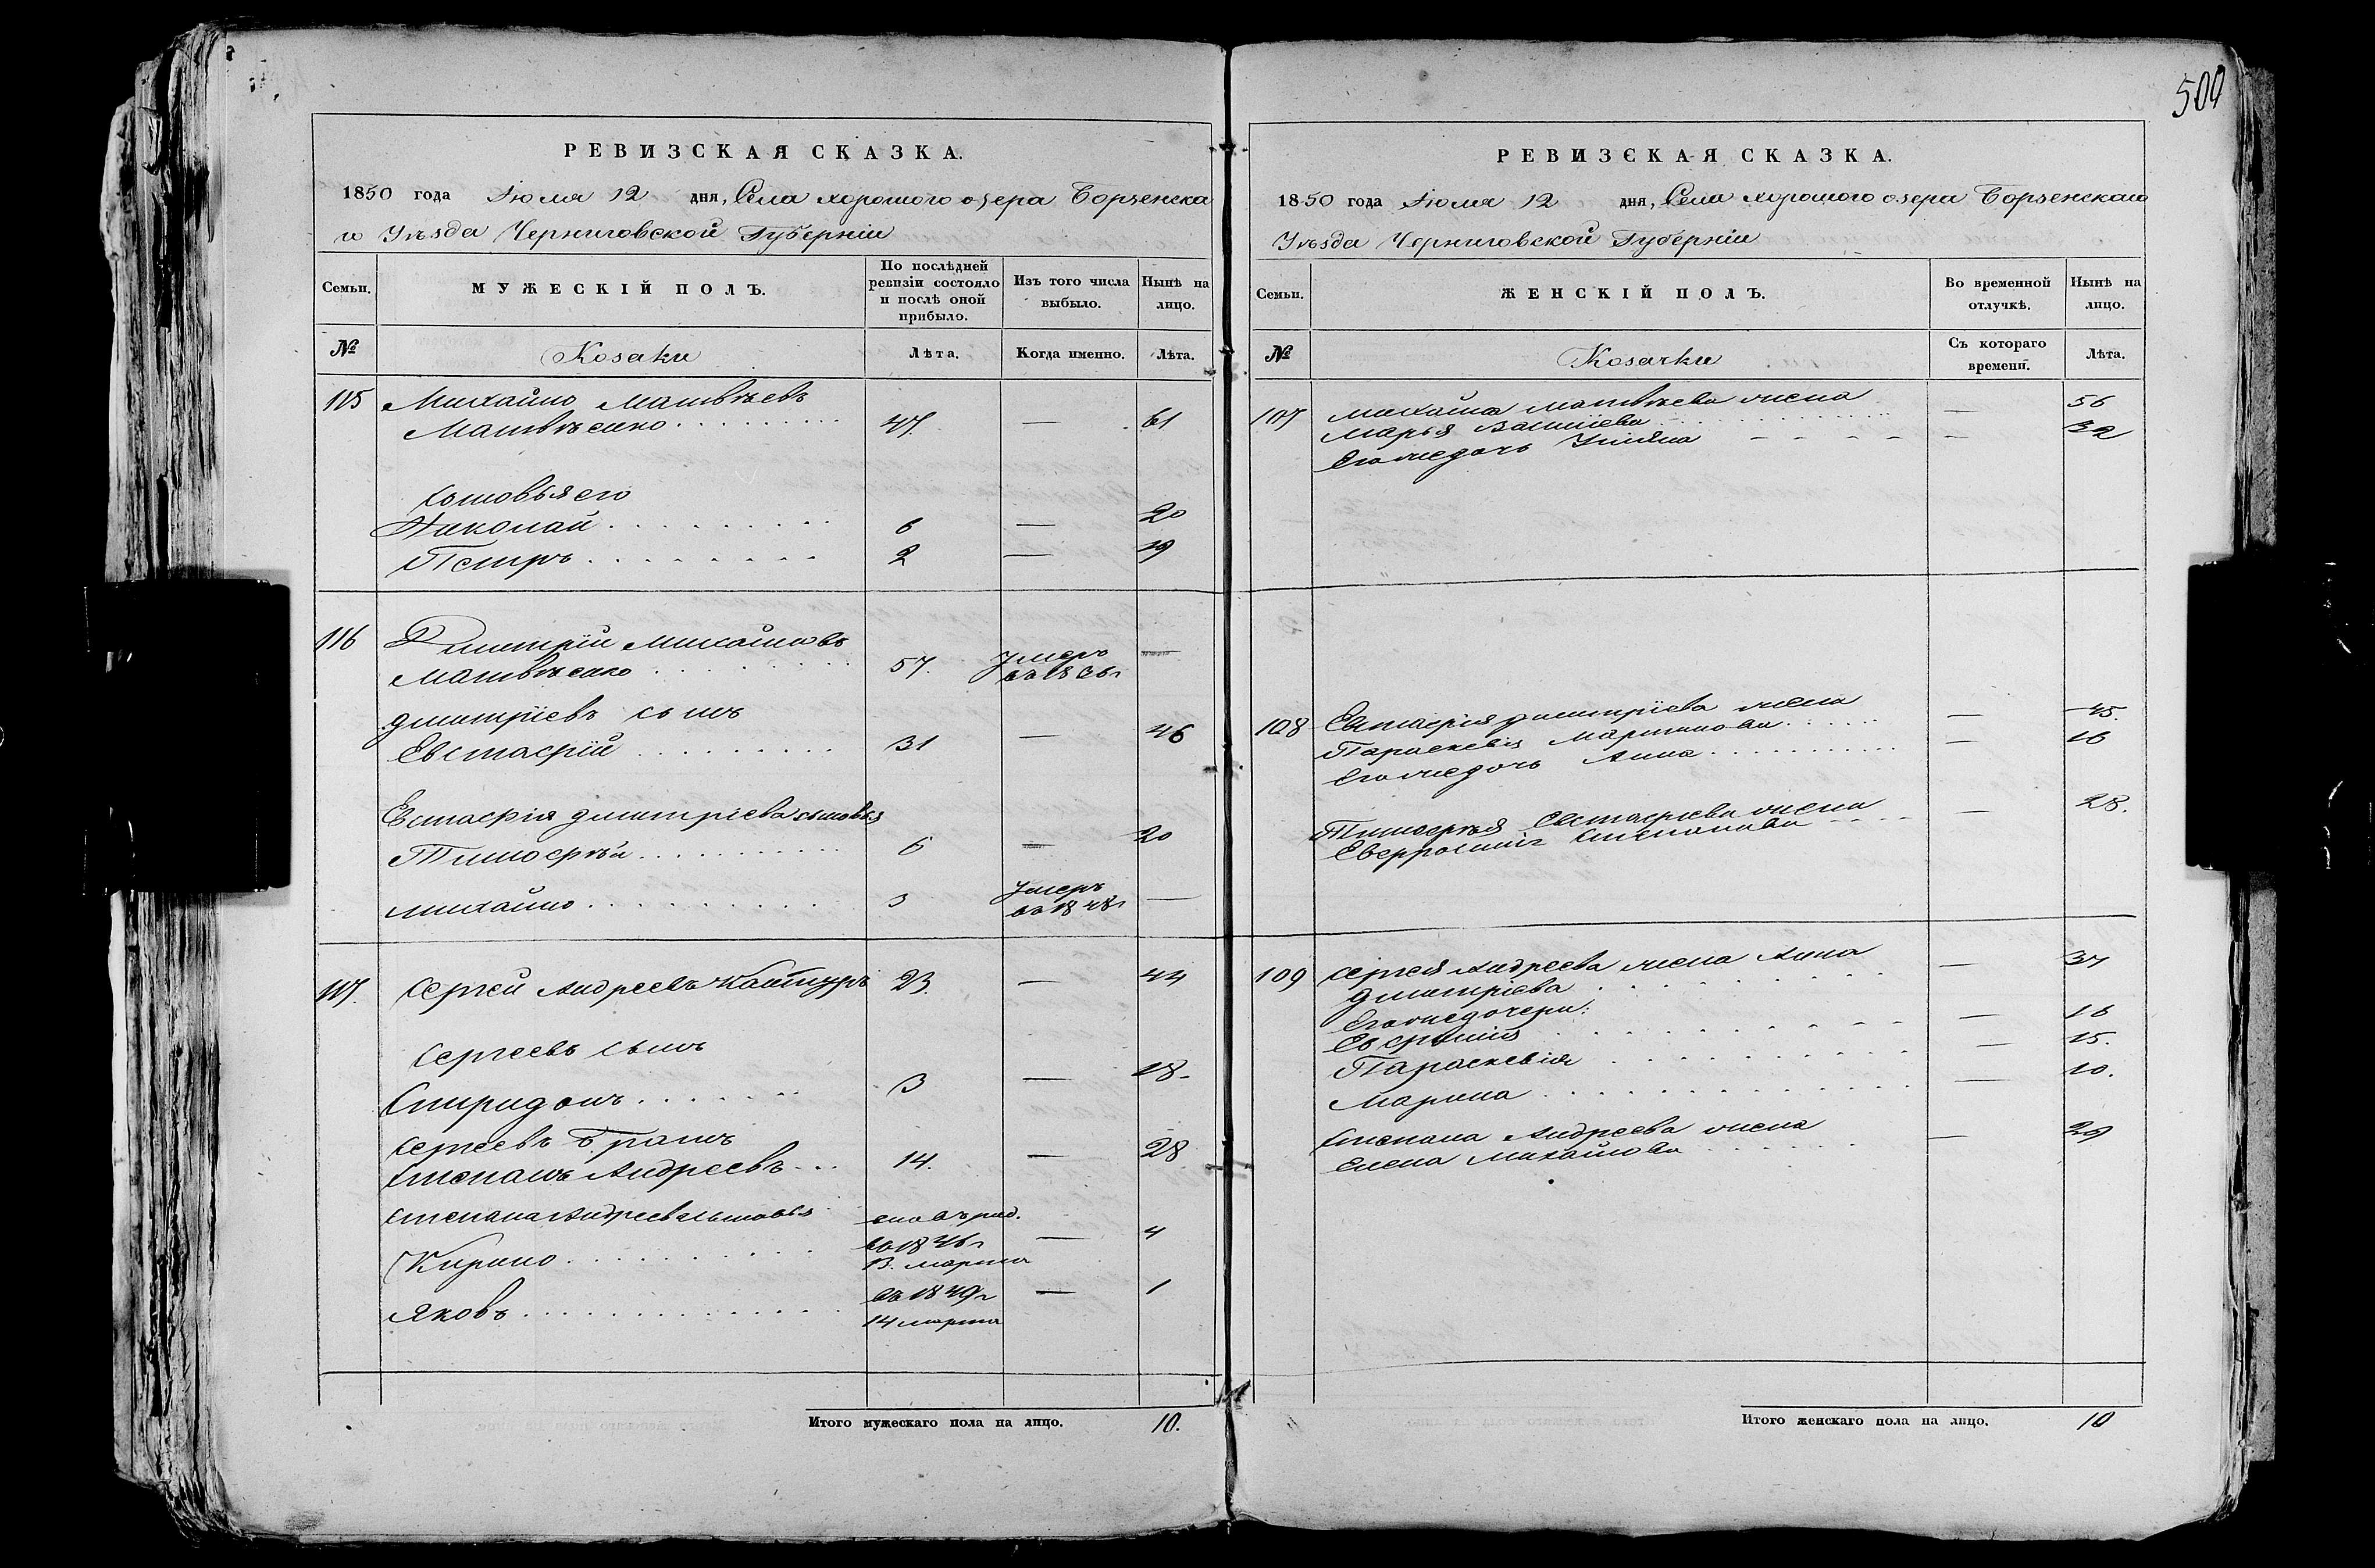 РЕВИЗСКАЯ СКАЗКА.
1850 года Июля 12 дня, Села хорошого озера Борзенска
го Уѣзда Черниговской Губерніи
Семьи.
МУЖЕСКІЙ ПОЛЪ.
По послѣдней
ревизіи состояло
и послѣ оной
прибыло.
Изъ того числа
выбыло.
Нынѣ на
лицо.
№
Козаки
Лѣта.
Когда именно.
Лѣта.
115 Михайло Матвѣевъ
Матвѣенко 47. — 61
Сыновья его
Николай 6 — 20
Петръ 2 — 19
116 Дмитрій Михайловъ
Матвѣенко 57. Умеръ —
въ 1836г
дмитріевъ сынъ
Евстафій 31 — 46
Евстафія дмитріева сыновья
Тимофѣй 6 — 20
михайло 3 Умеръ —
въ 1848г
117. Сергей Андреевъ 23. — 44
Сергеевъ сынъ
Спиридонъ 3 — 18
Сергеевъ братъ
Степанъ Андреевъ 14. — 28
Степана Андреева сыновья
Кирило въ 1846г — 4
13. марта
Яковъ въ 1849г — 1
14 марта
Итого мужескаго пола на лицо. 10.
509
РЕВИЗСКАЯ СКАЗКА.
1850 года Июля 12 дня, Села хорошого озера Борзенскаго
Уѣзда Черниговской Губерніи
Семьи.
ЖЕНСКІЙ ПОЛЪ.
Во временной
отлучкѣ.
Нынѣ на
лицо.
№
Козачки
Съ котораго
времени.
Лѣта.
107 михайла матвѣева жена
Марья — 56
Его же дочь Уліяна — 32
108 Евстафія дмитріева жена
Параскевія Мартинова — 45.
Его же дочь Анна — 16
Тимофѣя Евстафіева жена
Степанова — 28.
109 Сергея Андреева жена Анна
дмитріева — 37
Его же дочери:
Евфимія — 16
Параскевія — 15.
Марина — 10.
Степана Андреева жена
Елена Михайлова — 29
Итого женскаго пола на лицо. 10